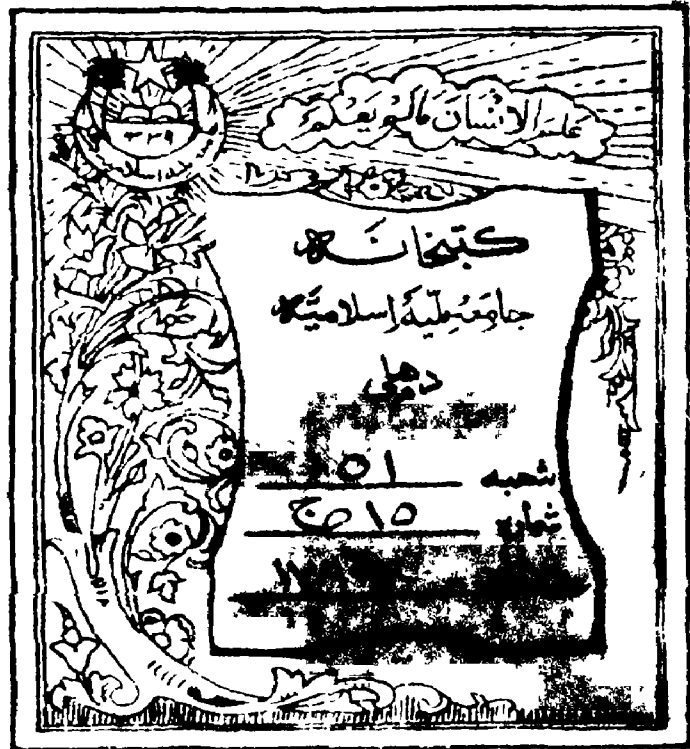 علم الانسان مالم يعلم
١٣٣٩
کتبخانہ
جامعہ ملیہ اسلامیہ
دهلی
شعبه ٥١
شماره ١٥ ج